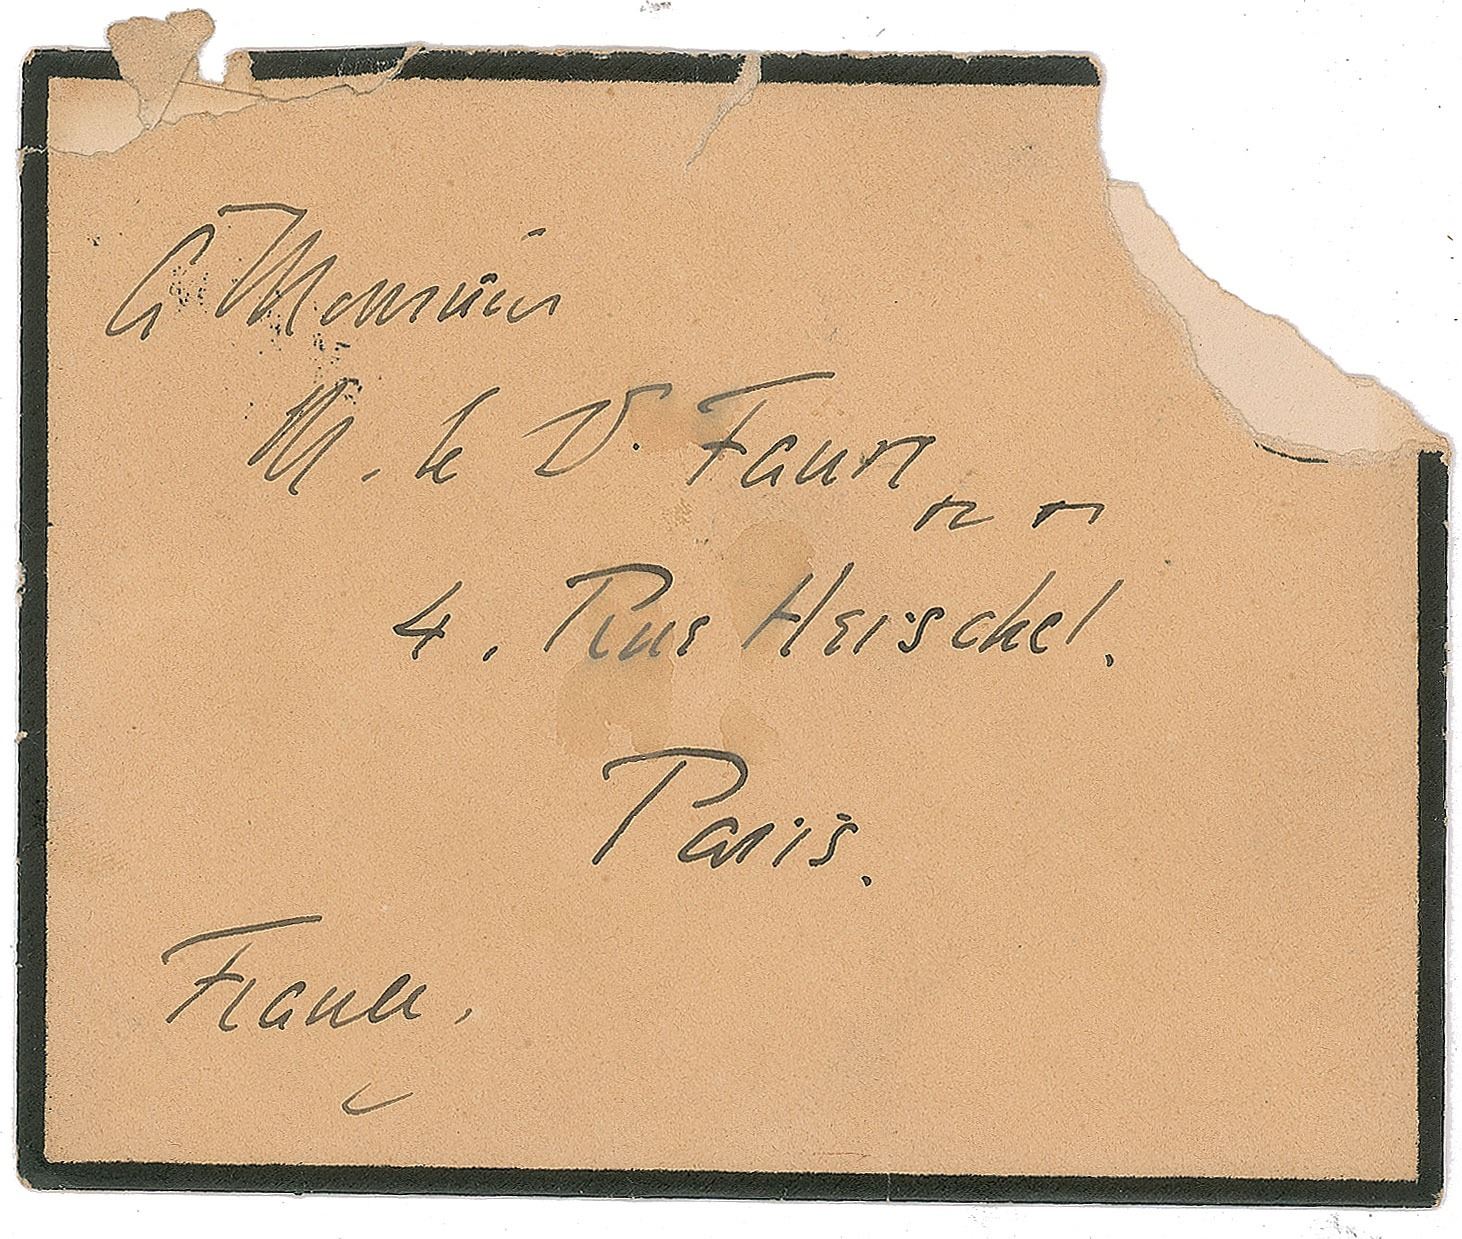 à Monsieur
M. le D. Faure
4. Rue Herschel.
Paris.
France.